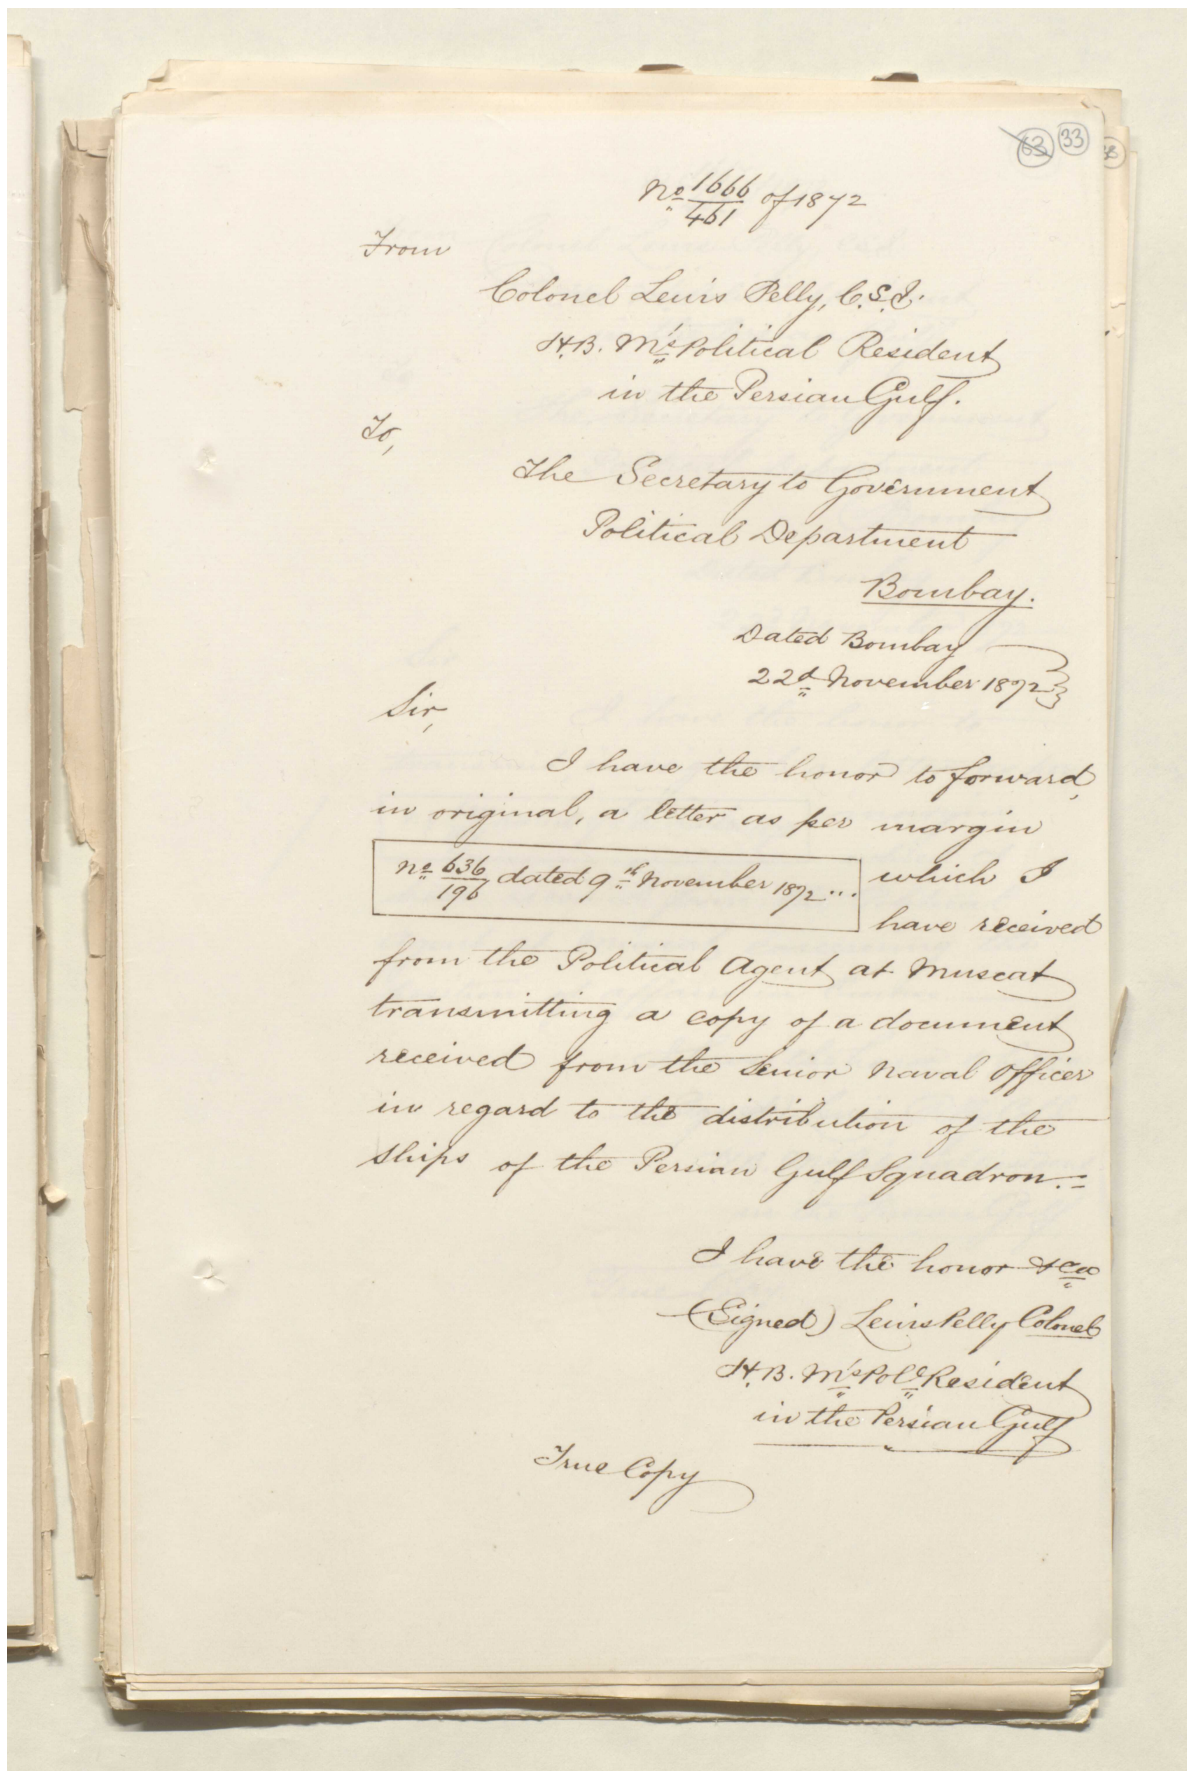 63 33
38
No 1666/461 of 1872
From
Colonel Lewis Pelly, C.S.I.
H.B. M's Political Resident
in the Persian Gulf.
To,
The Secretary to Government
Political Department
Bombay.
Dated Bombay
22d November 1872
Sir,
I have the honor to forward,
in original, a letter as per margin
No 636/196 dated 9th November 1872 ... which I
have received
from the Political Agent at Muscat
transmitting a copy of a document
received from the Senior Naval Officer
in regard to the distribution of the
ships of the Persian Gulf Squadron.=
I have the honor &ca
(Signed) Lewis Pelly Colonel
H.B. M's Pol.l Resident
in the Persian Gulf
True Copy